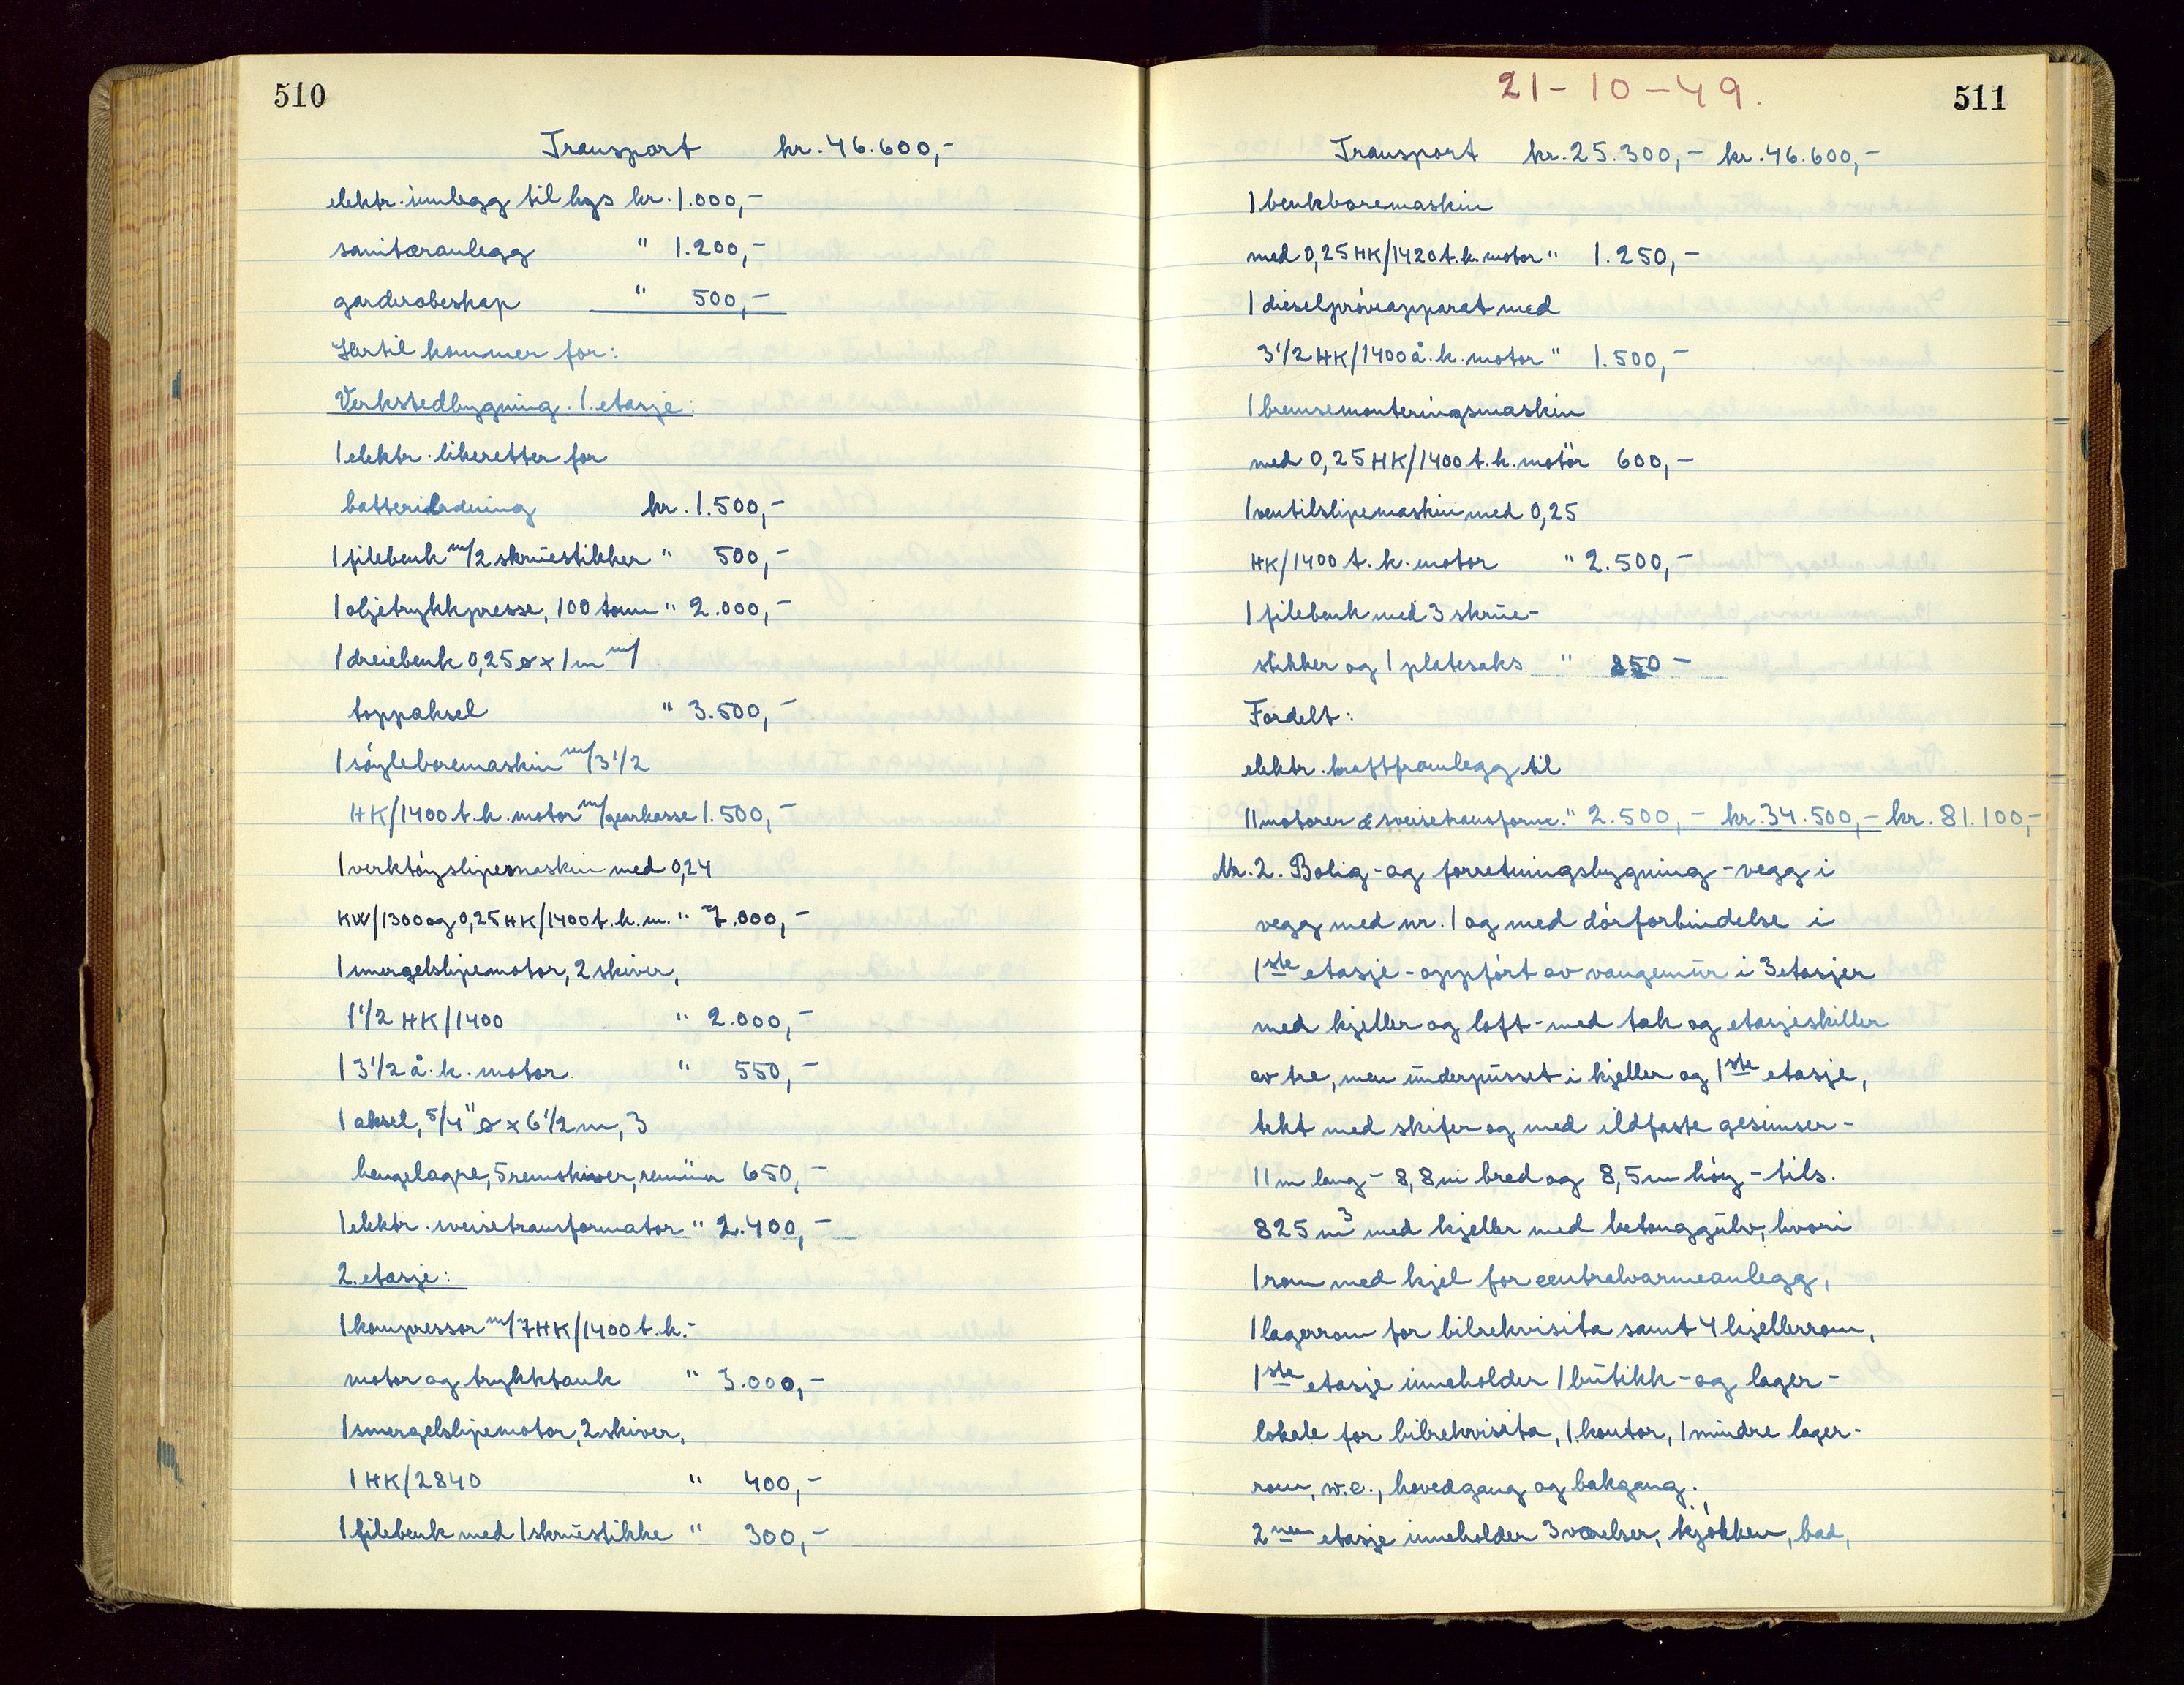 510
Transport kr. 46.600,-
elektr. innlegg til lys kr. 1.000,-
sanitæranlegg " 1.200,-
garderobeskap " 500,-
Hertil kommer for:
Verkstedbygning. 1. etasje:
1 elektr. likeretter for
batteriladning kr. 1.500,-
1 filebenk m/2 skruestikker " 500,-
1 oljetrykkpresse, 100 tonn " 2.000,-
1 dreiebenk 0,25 ø x 1 m m/
toppaksel " 3.500,-
1 søyleboremaskin m/3 1/2
HK/1400 t.k. motor m/gearkasse 1.500,-
1 verktøyslipemaskin med 0,24
KW/1300 og 0,25 HK/1400 t.k.m. " 7.000,-
1 smergelslipemotor, 2 skiver,
1 1/2 HK/1400 " 2.000,-
1 3 1/2 å.k. motor " 550,-
1 aksel, 5/4" ø x 6 1/2 m, 3
hengelagre, 5 remskiver, remmer 650,-
1 elektr. sveisetransformator " 2.400,-
2. etasje:
1 kompressor m/7 HK/1400 t.k.-
motor og trykktank " 3.000,-
1 smergelslipemotor, 2 skiver,
1 HK/2840 " 400,-
1 filebenk med 1 skruestikke " 300,-
21-10-49.
511
Transport kr. 25.300,- kr. 46.600,-
1 benkboremaskin
med 0,25 HK/1420 t.k. motor " 1.250,-
1 dieselprøveapparat med
3 1/2 HK/1400 å.k. motor " 1.500,-
1 bremsemonteringsmaskin
med 0,25 HK/1400 t.k. motor " 600,-
1 ventilslipemaskin med 0,25
HK/1400 t.k. motor " 2.500,-
1 filebenk med 3 skrue-
stikker og 1 platesaks " 850 -
Fordelt:
elektr. kraftframlegg til
11 motorer & sveisetransform. " 2.500,- kr. 34.500,- kr. 81.100,-
Nr. 2. Bolig- og forretningsbygning - vegg i
vegg med nr. 1 og med dørforbindelse i
1ste etasje - oppført av vangemur i 3 etasjer
med kjeller og loft - med tak og etasjeskiller
av tre, men underpusset i kjeller og 1ste etasje,
tekt med skifer og med ildfaste gesimser -
11 m lang - 8,8 m bred og 8,5 m høy - tils.
825 m3 med kjeller med betonggulv, hvori
1 rom med kjel for centralvarmeanlegg,
1 lagerrom for bilrekvisita samt 4 kjellerrom,
1ste etasje inneholder 1 butikk- og lager-
lokale for bilrekvisita, 1 kontor, 1 mindre lager-
rom, w.c., hovedgang og bakgang.,
2nen etasje inneholder 3 værelser, kjøkken, bad,